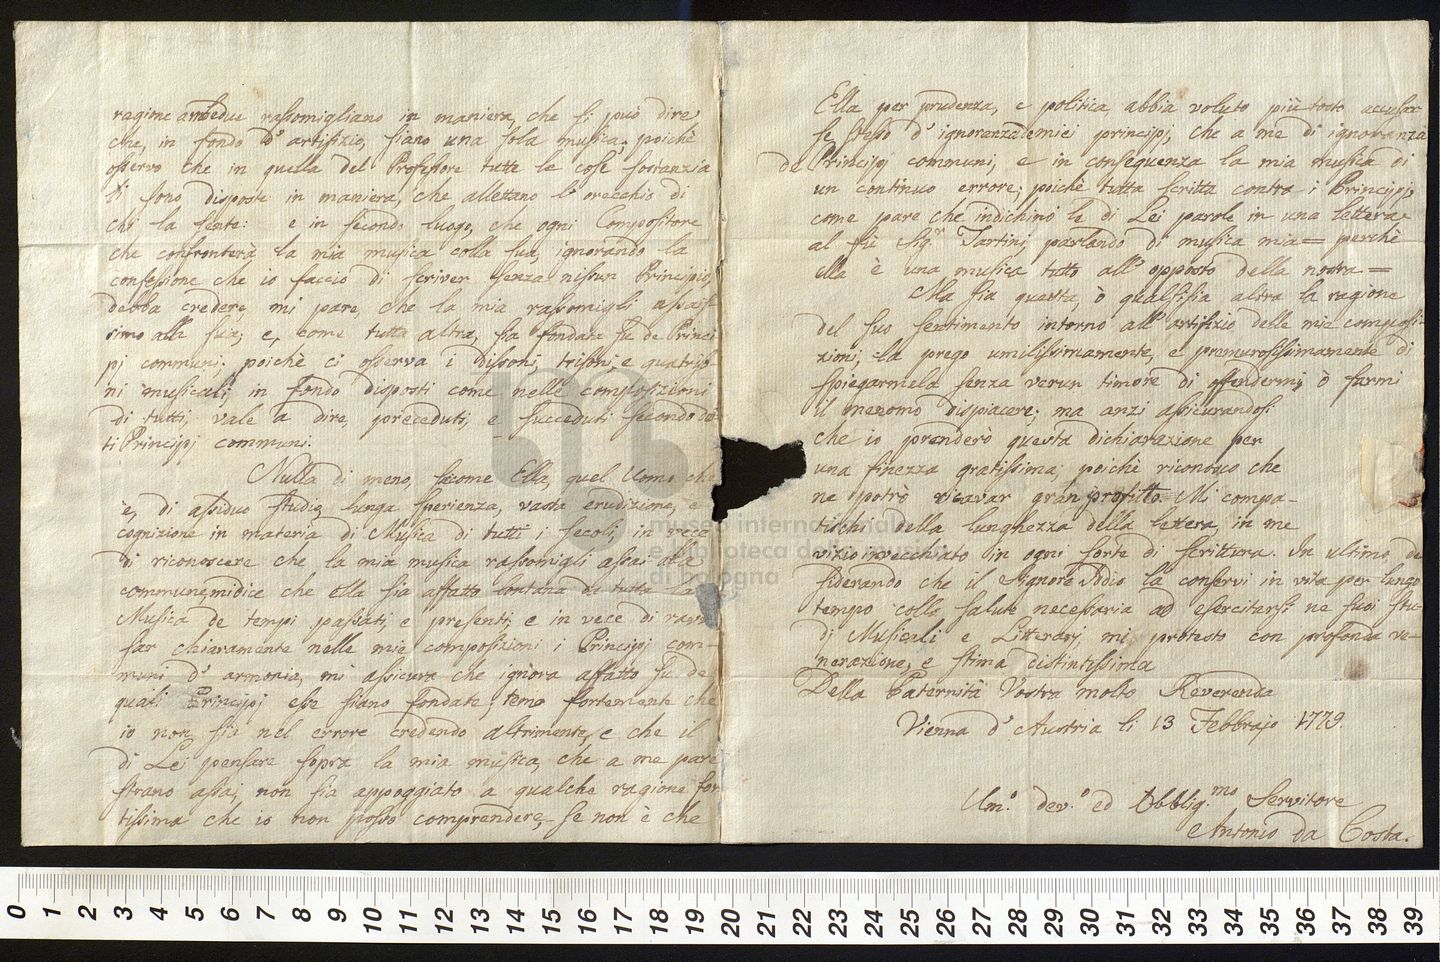 ragione ambedue rassomigliano in maniera, che si può dire
che, in fondo d'artifizio, siano una sola musica; poichè
osservo che in quella del Professore tutte le cose sostanzia
li sono disposte in maniera, che allettano l'orecchio di
chi la sente: e in secondo luogo, che ogni Compositore
che confronterà la mia musica colla sua, ignorando la
confessione che io faccio di scriver senza nissun Principio,
debba credere, mi pare, che la mia rassomigli assais
simo alla sua; e, come tutta altra, sia fondata su de Princi
pj communi: poichè ci osserva i dissoni, trisoni, e quatriso
ni musicali in fondo disposti come nelle composizioni
di tutti, vale a dire, preceduti, e succeduti secondo det
ti Principj communi.
Nulla di meno, siccome Ella, quel Uomo che
è, di assiduo studio, lunga sperienza, vasta erudizione, e
cognizione in materia di Musica di tutti i secoli, in vece
di riconoscere che la mia musica rassomigli assai alla
commune, mi dice che ella sia affatto lontana da tutta la
Musica de tempi passati, e presenti; e in vece di ravvi
sar chiaramente nelle mie composizioni i Principj com-
muni d'armonia, mi assicura che ignora affatto su de
quali Principj esse siano fondate; temo fortemente che
io non sia nel errore credendo altrimente, e che il
di Lei pensare sopra la mia musica, che a me pare
strano assai, non sia appoggiato a qualche ragione for
tissima che io non posso comprendere, se non è che
Ella per prudenza, e politica abbia voluto più tosto accusar
se stesso d'ignoranza de miei principj, che a me di ignoranza
de Principj communi, e in conseguenza la mia musica di
un continuo errore; poichè tutta scritta contra i Principj,
come pare che indichino le di Lei parole in una lettera
al fù Sig.r Tartini, parlando di musica mia = perchè
ella è una musica tutto all'opposto della nostra =
Ma sia questa, ò qualsisia altra la ragione
del suo sentimento intorno all'artifizio delle mie composi-
zioni, la prego umilissimamente, e premurosissimamente di
spiegarmela senza verun timore di offendermi, ò farmi
il menomo dispiacere; ma anzi assicurandosi
che io prenderò questa dichiarazione per
una finezza gratissima; poichè riconosco che
ne potrò ricavar gran profitto. Mi compa-
tischi della lunghezza della lettera, in me
vizio invecchiato in ogni sorte di scrittura. In ultimo, de
siderando che il Signore Iddio la conservi in vita per lungo
tempo colla salute necessaria ad esercitarsi ne suoi stu-
dj Musicali e Litterarj, mi protesto con profonda ve-
nerazione, e stima distintissima
Della Paternità Vostra molto Reverenda
Vienna d'Austria li 13 Febbrajo 1779.
Um.o dev.o ed Obblig.mo Servitore
Antonio da Costa.
museo internazionale
e biblioteca della musica
di bologna
0 1 2 3 4 5 6 7 8 9 10 11 12 13 14 15 16 17 18 19 20 21 22 23 24 25 26 27 28 29 30 31 32 33 34 35 36 37 38 39